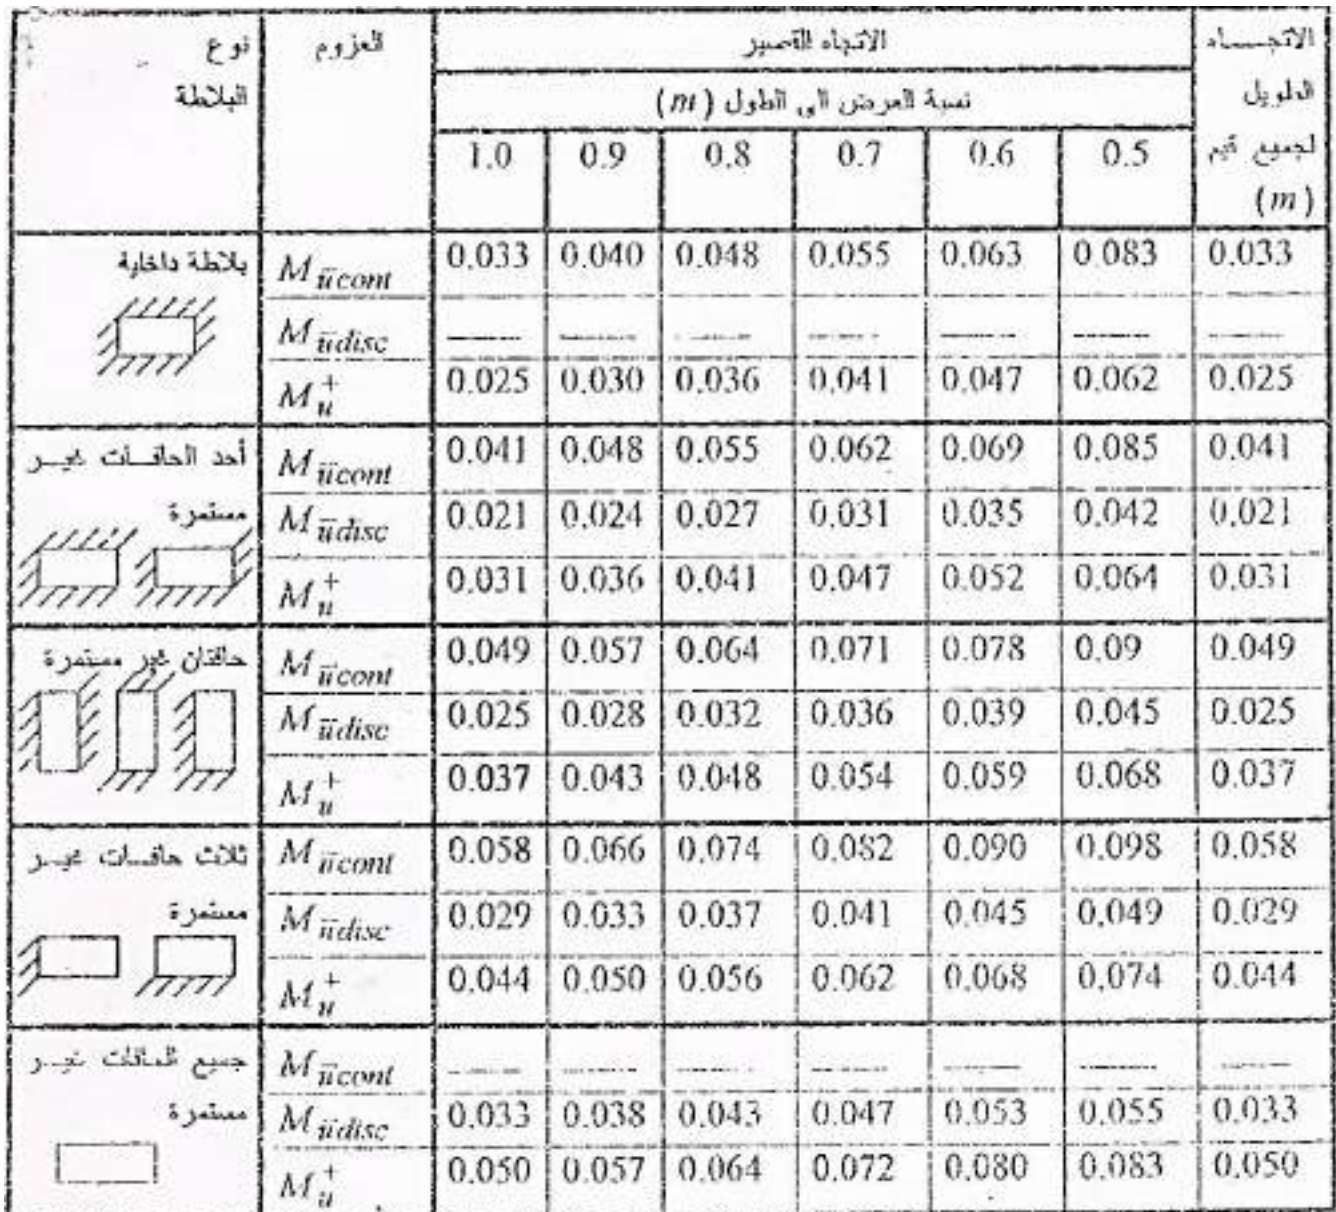 نوع البلاطة | العزوم | الاتجاه القصير | الاتجاه الطويل لجميع قيم (m)
نسبة العرض الى الطول (m)
1.0 | 0.9 | 0.8 | 0.7 | 0.6 | 0.5
بلاطة داخلية
M ūcont | 0.033 | 0.040 | 0.048 | 0.055 | 0.063 | 0.083 | 0.033
M ūdisc | — | — | — | — | — | — | —
M u+ | 0.025 | 0.030 | 0.036 | 0.041 | 0.047 | 0.062 | 0.025
أحد الحافات غير مستمرة
M ūcont | 0.041 | 0.048 | 0.055 | 0.062 | 0.069 | 0.085 | 0.041
M ūdisc | 0.021 | 0.024 | 0.027 | 0.031 | 0.035 | 0.042 | 0.021
M u+ | 0.031 | 0.036 | 0.041 | 0.047 | 0.052 | 0.064 | 0.031
حافتان غير مستمرة
M ūcont | 0.049 | 0.057 | 0.064 | 0.071 | 0.078 | 0.09 | 0.049
M ūdisc | 0.025 | 0.028 | 0.032 | 0.036 | 0.039 | 0.045 | 0.025
M u+ | 0.037 | 0.043 | 0.048 | 0.054 | 0.059 | 0.068 | 0.037
ثلاث حافات غير مستمرة
M ūcont | 0.058 | 0.066 | 0.074 | 0.082 | 0.090 | 0.098 | 0.058
M ūdisc | 0.029 | 0.033 | 0.037 | 0.041 | 0.045 | 0.049 | 0.029
M u+ | 0.044 | 0.050 | 0.056 | 0.062 | 0.068 | 0.074 | 0.044
جميع الحافات غير مستمرة
M ūcont | — | — | — | — | — | — | —
M ūdisc | 0.033 | 0.038 | 0.043 | 0.047 | 0.053 | 0.055 | 0.033
M u+ | 0.050 | 0.057 | 0.064 | 0.072 | 0.080 | 0.083 | 0.050